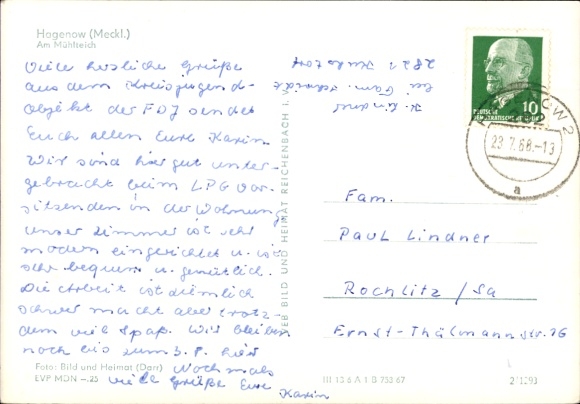 Hagenow (Meckl.)
Am Mühlteich
Viele herzliche Grüße
aus dem Kreisjugend-
objekt der FDJ sendet
Euch allen Eure Karin.
Wir sind hier gut unter-
gebracht beim LPG Vor-
sitzenden in der Wohnung
unser Zimmer ist sehr
modern eingerichtet u. ist
sehr bequem u. gemütlich.
Die Arbeit ist ziemlich
schwer macht aber trotz-
dem viel Spaß. Wir bleiben
noch bis zum 3. hier
Nochmals
viele Grüße Eure
Karin
K. Lindner
bei Fam. Schmidt
2821
Foto: Bild und Heimat (Darr)
EVP MDN -.25
VEB BILD UND HEIMAT REICHENBACH I.
DEUTSCHE
DEMOKRATISCHE REPUBLIK
10
HAGENOW 2
23.7.68.-13
a
Fam.
Paul Lindner
Rochlitz / Sa
Ernst-Thälmannstr. 26
III 13 6 A 1 B 753 67